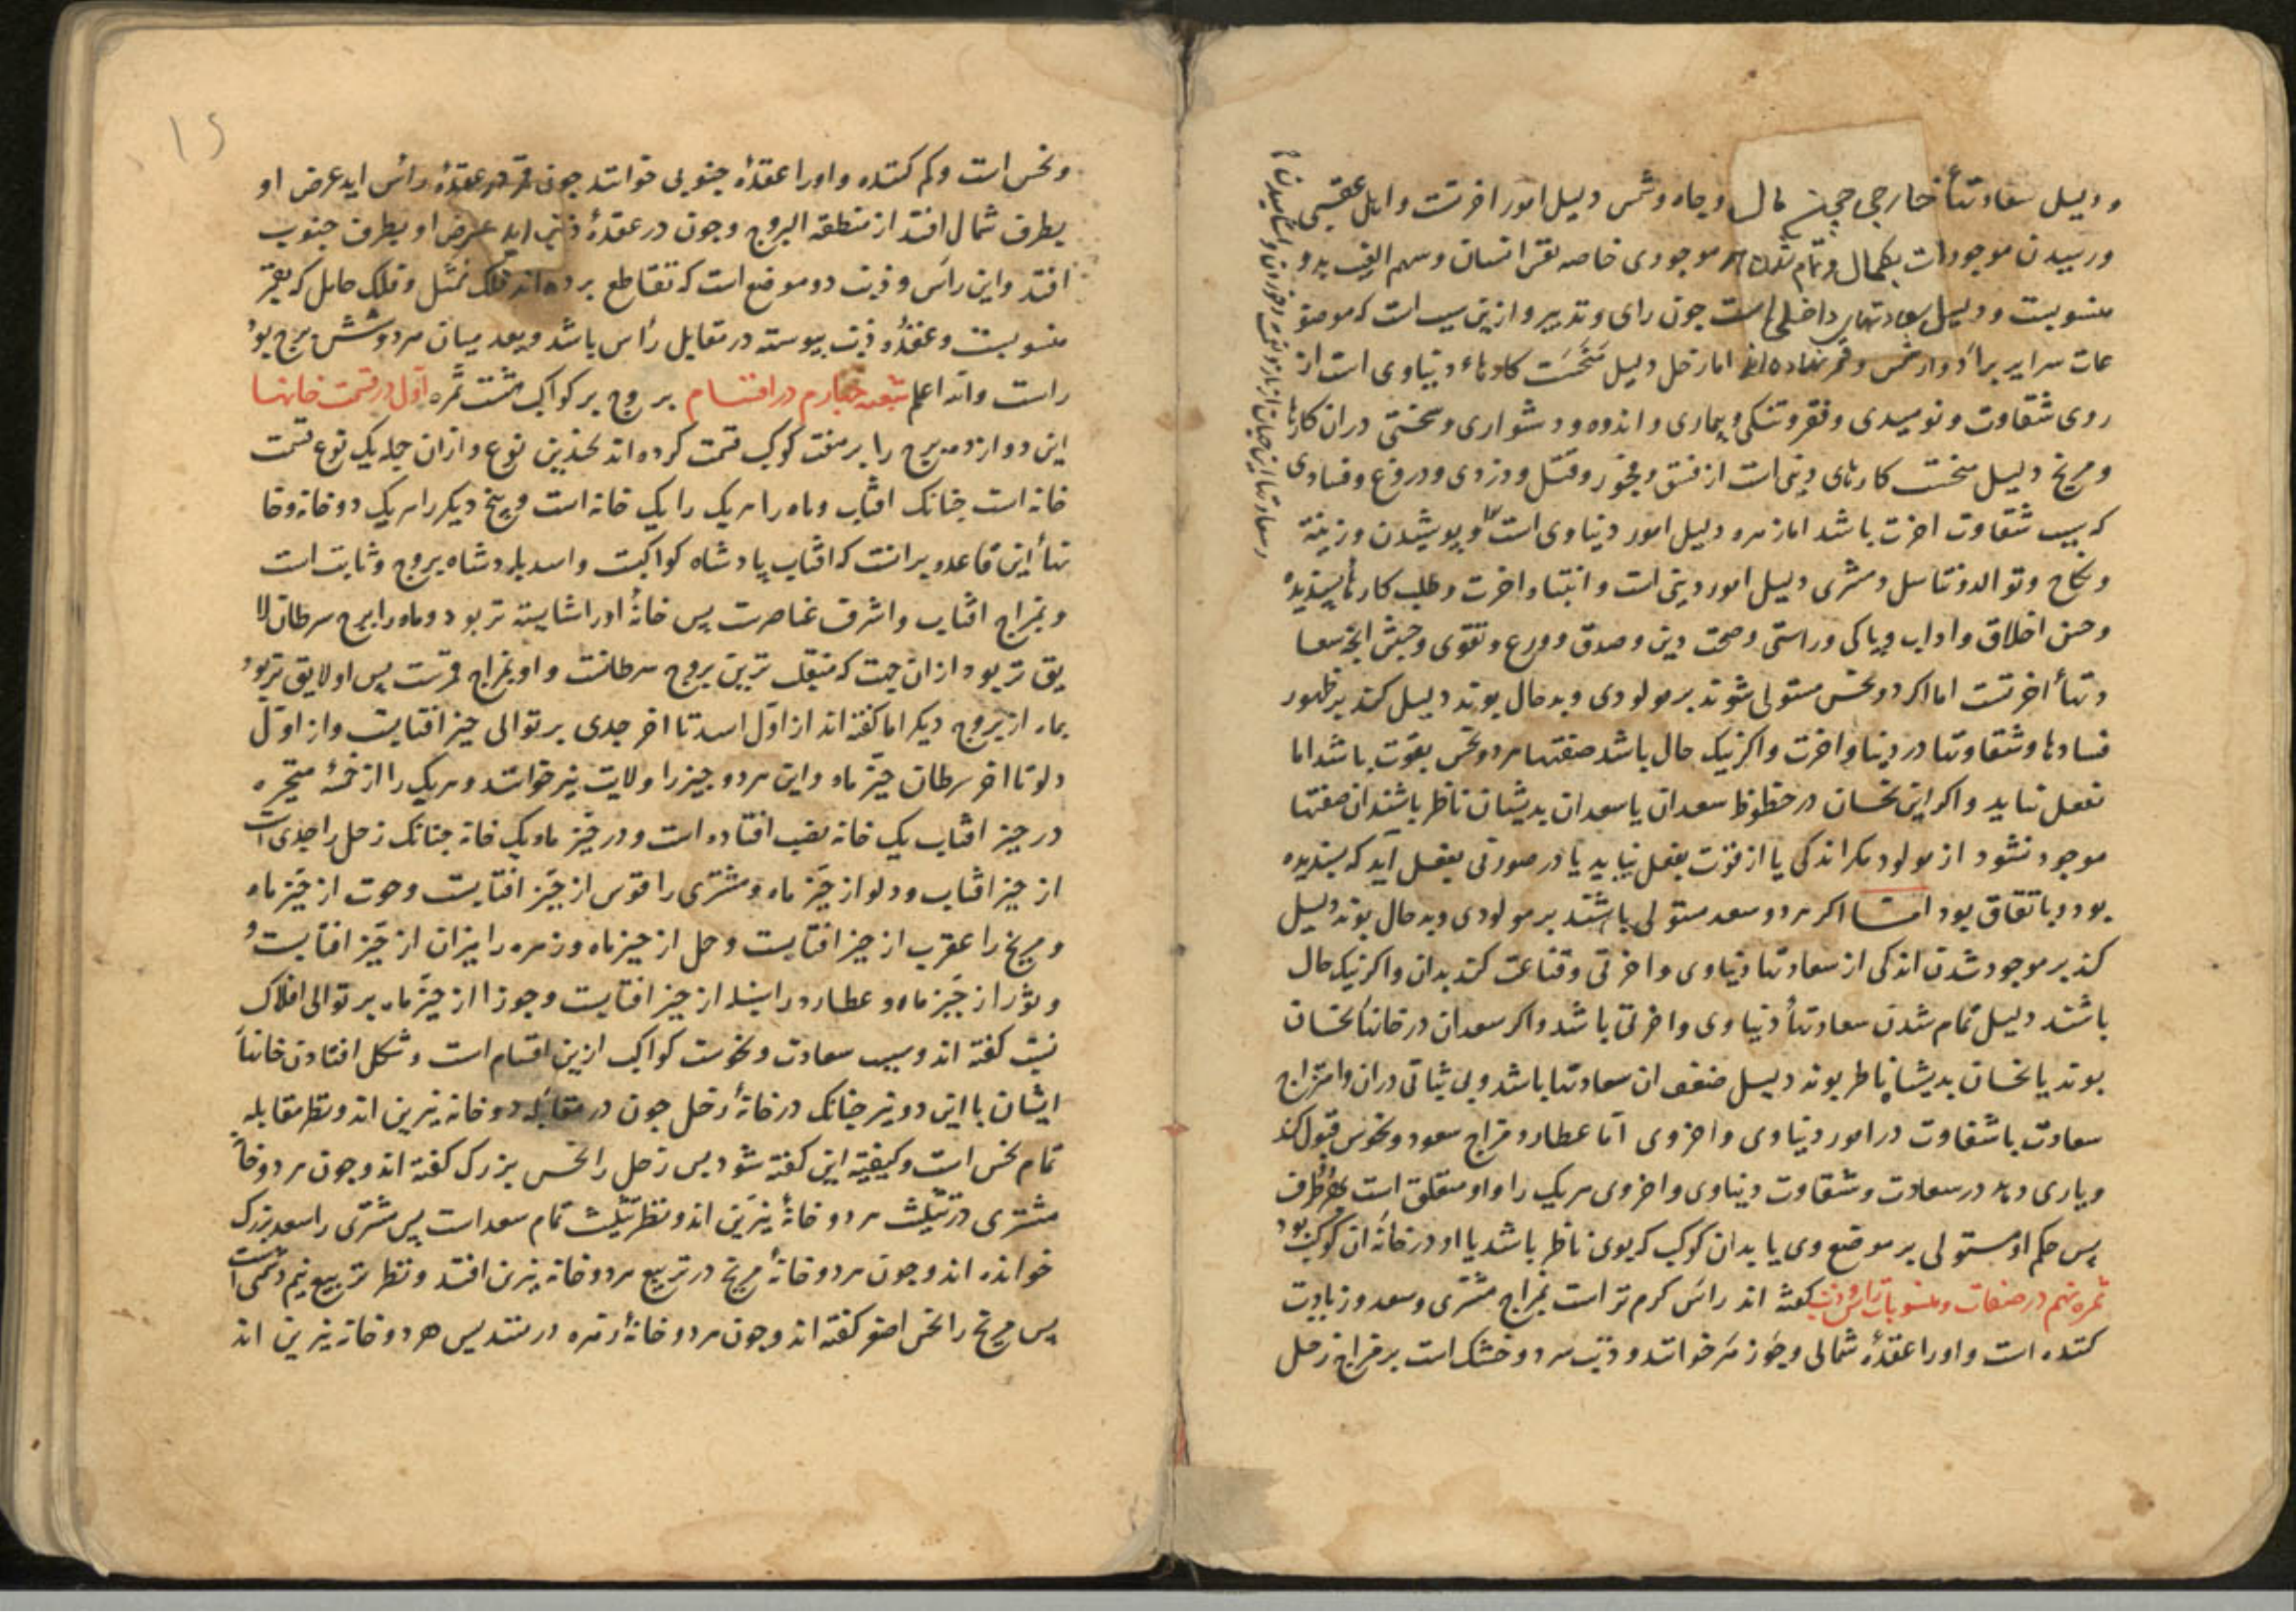 و دلیل سعادتهأ خارجی چون مال و جاه و شمس دلیل امور اخرتست و اهل عقبی
و رسیدن موجودات بکمال و تمام شدن هر موجودی خاصه نفس انسان و سهم الغیب بدو
منسوبست و دلیل سعادتهای داخلی است چون رای و تدبیر و ازین سبب است که موضو
عات سرایر بر أدوار شمس و قمر نهاده‌اند اما زحل دلیل کارهاء دنیاوی است از
روی شقاوت و نومیدی و فقر و تنکی و بیماری و اندوه و دشواری و سختی در آن کارها
و مریخ دلیل سخت کارهای دینی است از فسق و فجور و قتل و دزدی و دروغ و فسادی
که سبب شقاوت اخرت باشد اما زهره دلیل امور دنیاوی است و پوشیدن و زینة
و نکاح و توالد و تناسل و مشتری دلیل امور دینی است و ابتناء اخرت و طلب کارهأ پسندیده
و حسن اخلاق و اداب و پاکی و راستی و صحت دین و صدق و ورع و تقوی و جنس انچه سعا
دتهأ اخرتست اما اکر دو نحس مستولی شوند بر مولودی و بدحال بوند دلیل کند بر ظهور
فسادها و شقاوتها در دنیا و اخرت و اکر نیک حال باشد صفتهاء هر دو نحس بقوت باشد اما
بفعل نیاید و اکر این نحسان در حظوظ سعدان یا سعدان بدیشان ناظر باشند ان صفتها
موجود نشود از مولود مکر اندکی یا از قوت بفعل نیاید یا در صورتی بفعل آید که پسندیده
بود و باتفاق بود اما اکر هر دو سعد مستولی باشند بر مولودی و بدحال بوند دلیل
کند بر موجود شدن اندکی از سعادتها دنیاوی و اخرتی و قناعت کند بدان و اکر نیک حال
باشند دلیل تمام شدن سعادتهأ دنیاوی و اخرتی باشد و اکر سعدان در خانهاء نحسان
بوند یا نحسان بدیشان ناظر بوند دلیل ضعف ان سعادتها باشد و بی ثباتی دران و امتزاج
سعادت با شقاوت در امور دنیاوی و اخروی اما عطارد مزاج سعود و نحوس قبول کند
و یاری دهد در سعادت و شقاوت دنیاوی و اخروی هر یک را و او متعلق است بهر طرف
پس حکم او مستولی بر موضع وی یا بدان کوکب که بوی ناظر باشد یا او در خانه ان کوکب بود
ثمره نهم در صفات و منسوبات راس و ذنب کفته اند رأس کرم تر است بمزاج مشتری و سعد و زیادت
کننده است و او را عقدهٔ شمالی و جوزهر خوانند و ذنب سرد و خشک است بر مزاج زحل
و سعادتها این جهان از بازو خوردن و اشامیدن
۱۵
و نحس است و کم کننده و او را عقدهٔ جنوبی خوانند چون قمر در عقدهٔ رأس اید عرض او
بطرف شمال افتد از منطقه البروج و چون در عقدهٔ ذنب اید عرض او بطرف جنوب
افتد و این رأس و ذنب دو موضع است که تقاطع برده‌اند فلک ممثل و فلک حامل که بقمر
منسوبست و عقدهٔ ذنب پیوسته در مقابل رأس باشد و بعد میان هر دو شش برج بود
راست والله اعلم شعبه چهارم در اقتسام بروج بر کواکب هشت ثمره اول در قسمت خانها
این دوازده برج را بر هفت کوکب قسمت کرده اند بچندین نوع و ازان جمله یک نوع قسمت
خانه است چنانک افتاب و ماه را هر یک را یک خانه است و پنج دیکر را هر یک دو خانه و خا
نهأ این قاعده برانست که افتاب پادشاه کواکبست و اسد پادشاه بروج و ثابت است
و بمزاج افتاب و اشرف عناصرست پس خانهٔ او را شایسته تر بود و ماه را برج سرطان لا
یق تر بود از ان جهت که منقلب ترین بروج سرطانست و او بمزاج قمرست پس او لایق تر بود
بماه از بروج دیکر اما کفته اند از اول اسد تا اخر جدی بر توالی حیز افتابست و از اول
دلو تا اخر سرطان حیز ماه و این هر دو حیز را ولایت نیز خوانند و هر یک را از خمسهٔ متحیره
در حیز افتاب یک خانه نصیب افتاده است و در حیز ماه یک خانه چنانک زحل را جدی است
از حیز افتاب و دلو از حیز ماه و مشتری را قوس از حیز افتابست و حوت از حیز ماه
و مریخ را عقرب از حیز افتابست و حمل از حیز ماه و زهره را میزان از حیز افتابست و
و ثور از حیز ماه و عطارد را سنبله از حیز افتابست و جوزا از حیز ماه بر توالی افلاک
نسبت کفته اند و سبب سعادت و نحوست کواکب ازین اقسام است و شکل افتادن خانهأ
ایشان با این دو نیر چنانک در خانهٔ زحل چون در مقابله دو خانه نیرین اند و نظر مقابله
تمام نحس است و کیفیة این کفته شود پس زحل را نحس بزرک کفته اند و چون هر دو خانهٔ
مشتری در تثلیث هر دو خانهٔ نیرین اند و نظر تثلیث تمام سعد است پس مشتری را سعد بزرک
خوانده اند و چون هر دو خانهٔ مریخ در تربیع هر دو خانه نیرین افتد و نظر تربیع نیم دشمنی است
پس مریخ را نحس اصغر کفته اند و چون هر دو خانهٔ زهره در تسدیس هر دو خانه نیرین اند